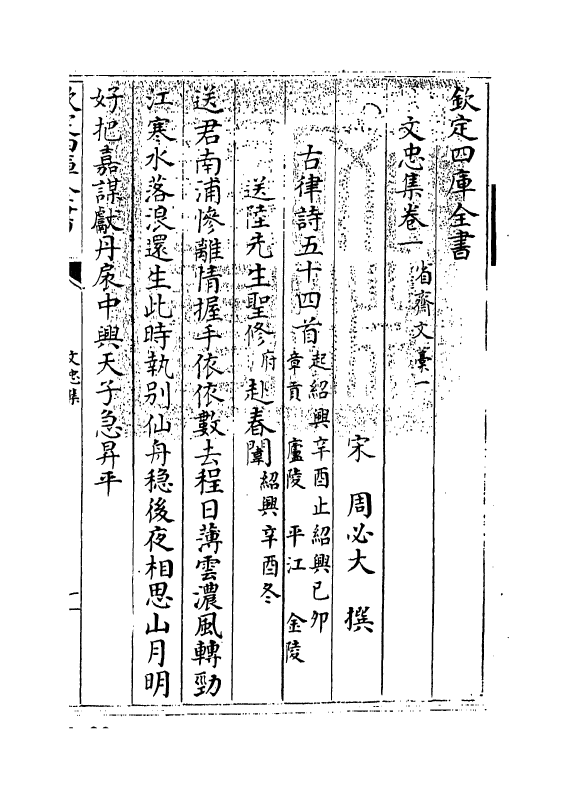 欽定四庫全書
文忠集卷一 省齋文藁一
宋 周必大 撰
古律詩五十四首 起紹興辛酉止紹興己卯 章貢 廬陵 平江 金陵
送陸先生聖修府赴春闈 紹興辛酉冬
送君南浦慘離情握手依依數去程日薄雲濃風轉勁
江寒水落浪還生此時執别仙舟穏後夜相思山月明
好把嘉謀獻丹扆中興天子急昇平
欽定四庫全書
文忠集
一